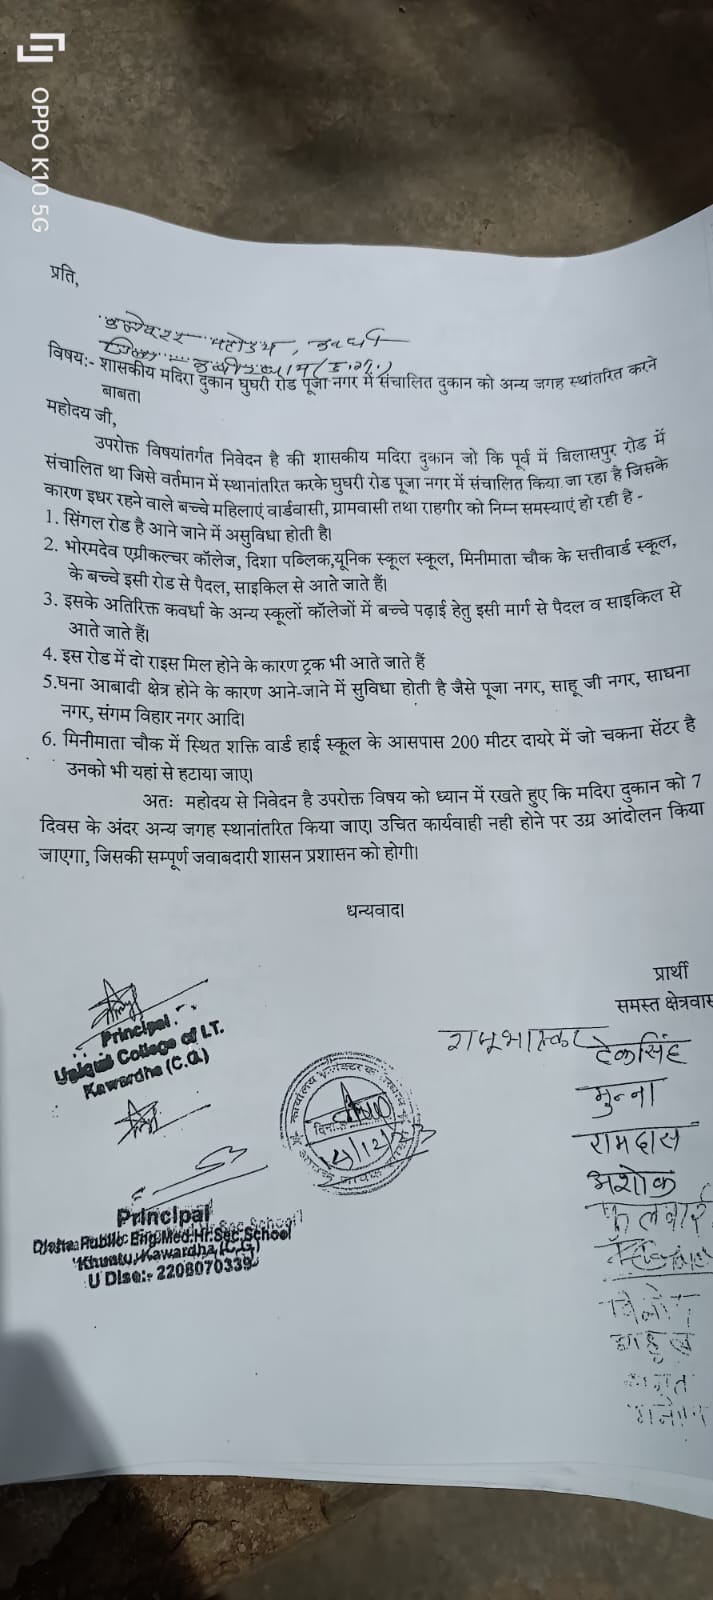 OPPO K10 5G
प्रति,
कलेक्टर महोदय,
जिला
विषय:- शासकीय मदिरा दुकान घुघरी रोड पूजा नगर में संचालित दुकान को अन्य जगह स्थांतरित करने
बाबत।
महोदय जी,
उपरोक्त विषयांतर्गत निवेदन है की शासकीय मदिरा दुकान जो कि पूर्व में बिलासपुर रोड में
संचालित था जिसे वर्तमान में स्थानांतरित करके घुघरी रोड पूजा नगर में संचालित किया जा रहा है जिसके
कारण इधर रहने वाले बच्चे महिलाएं वार्डवासी, ग्रामवासी तथा राहगीर को निम्न समस्याएं हो रही है -
1. सिंगल रोड है आने जाने में असुविधा होती है।
2. भोरमदेव एग्रीकल्चर कॉलेज, दिशा पब्लिक,यूनिक स्कूल स्कूल, मिनीमाता चौक के सत्तीवार्ड स्कूल,
के बच्चे इसी रोड से पैदल, साइकिल से आते जाते हैं।
3. इसके अतिरिक्त कवर्धा के अन्य स्कूलों कॉलेजों में बच्चे पढ़ाई हेतु इसी मार्ग से पैदल व साइकिल से
आते जाते हैं।
4. इस रोड में दो राइस मिल होने के कारण ट्रक भी आते जाते हैं
5.घना आबादी क्षेत्र होने के कारण आने-जाने में सुविधा होती है जैसे पूजा नगर, साहू जी नगर, साधना
नगर, संगम विहार नगर आदि।
6. मिनीमाता चौक में स्थित शक्ति वार्ड हाई स्कूल के आसपास 200 मीटर दायरे में जो चकना सेंटर है
उनको भी यहां से हटाया जाए।
अतः महोदय से निवेदन है उपरोक्त विषय को ध्यान में रखते हुए कि मदिरा दुकान को 7
दिवस के अंदर अन्य जगह स्थानांतरित किया जाए। उचित कार्यवाही नही होने पर उग्र आंदोलन किया
जाएगा, जिसकी सम्पूर्ण जवाबदारी शासन प्रशासन को होगी।
धन्यवाद।
प्रार्थी
समस्त क्षेत्रवास
Principal
College of I.T.
Kawardha (C.G)
राजू भास्कर
टेकसिंह
मुन्ना
रामदास
अशोक
Principal
Public Eng.Med.Hr.Sec.School
Kawardha,(C.G)
U Dise:- 2208070339